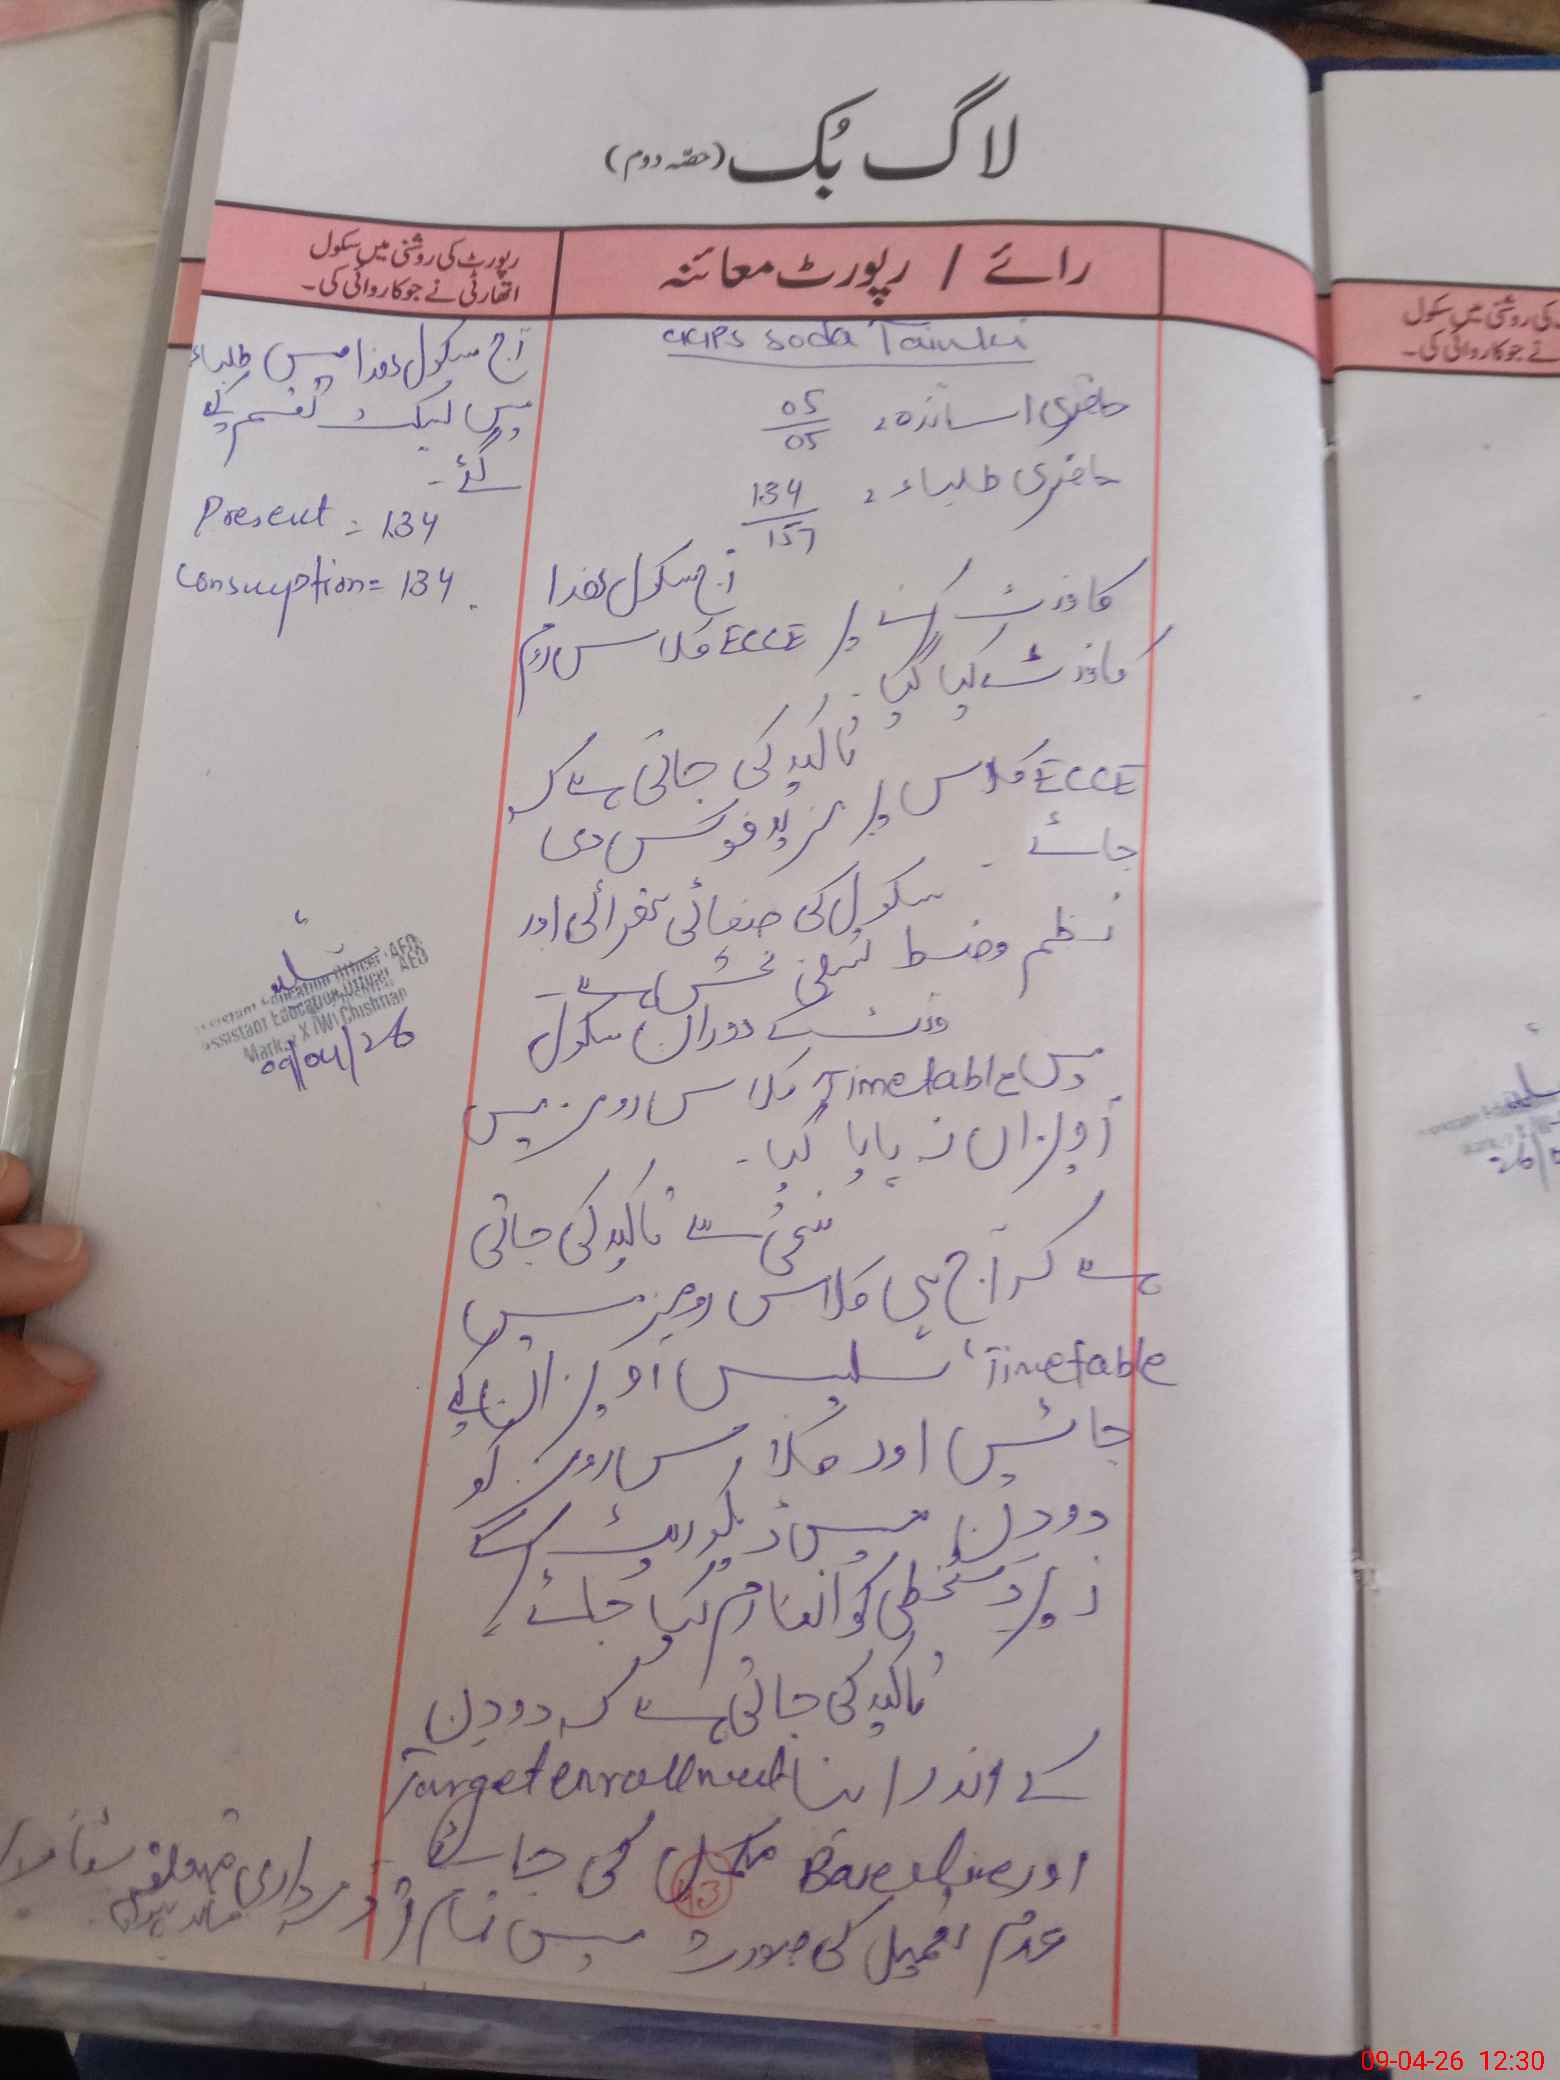 لاگ بُک (حصّہ دوم)
رائے / رپورٹ معائنہ
رپورٹ کی روشنی میں سکول
اتھارٹی نے جو کاروائی کی۔
Soda
حاضری اساتذہ، 05/05
حاضری طلباء، 134/157
آج سکول ھذا
کا وزٹ کرنے پر ECCE کلاس روم
کا وزٹ کیا گیا۔
تاکید کی جاتی ہے کہ
ECCE کلاس پر مزید فوکس دی
جائے۔
سکول کی صفائی ستھرائی اور
نظم و ضبط تسلی بخش ہے۔
وزٹ کے دوران سکول
میں Timetable کلاس رومز میں
آویزاں نہ پایا گیا۔
سختی سے تاکید کی جاتی
ہے کہ آج ہی کلاس رومز میں
Timetable، سلیبس آویزاں کیے
جائیں اور کلاس رومز کو
دو دن میں ڈیکوریٹ کر کے
زیر دستخطی کو انفارم کیا جائے
تاکید کی جاتی ہے کہ دو دن
کے اندر اپنا Target enrollment
اور Baseline مکمل کی جائے
عدم تعمیل کی صورت میں تمام تر ذمہ داری متعلقہ
43
آج سکول ھذا میں طلباء
میں تقسیم کیے
گئے۔
Present = 134
Consumption = 134.
Assistant Education Officer, AEO
Markaz X (W) Chishtian
09/04/26
کی روشنی میں سکول
نے جو کاروائی کی۔
09-04-26 12:30